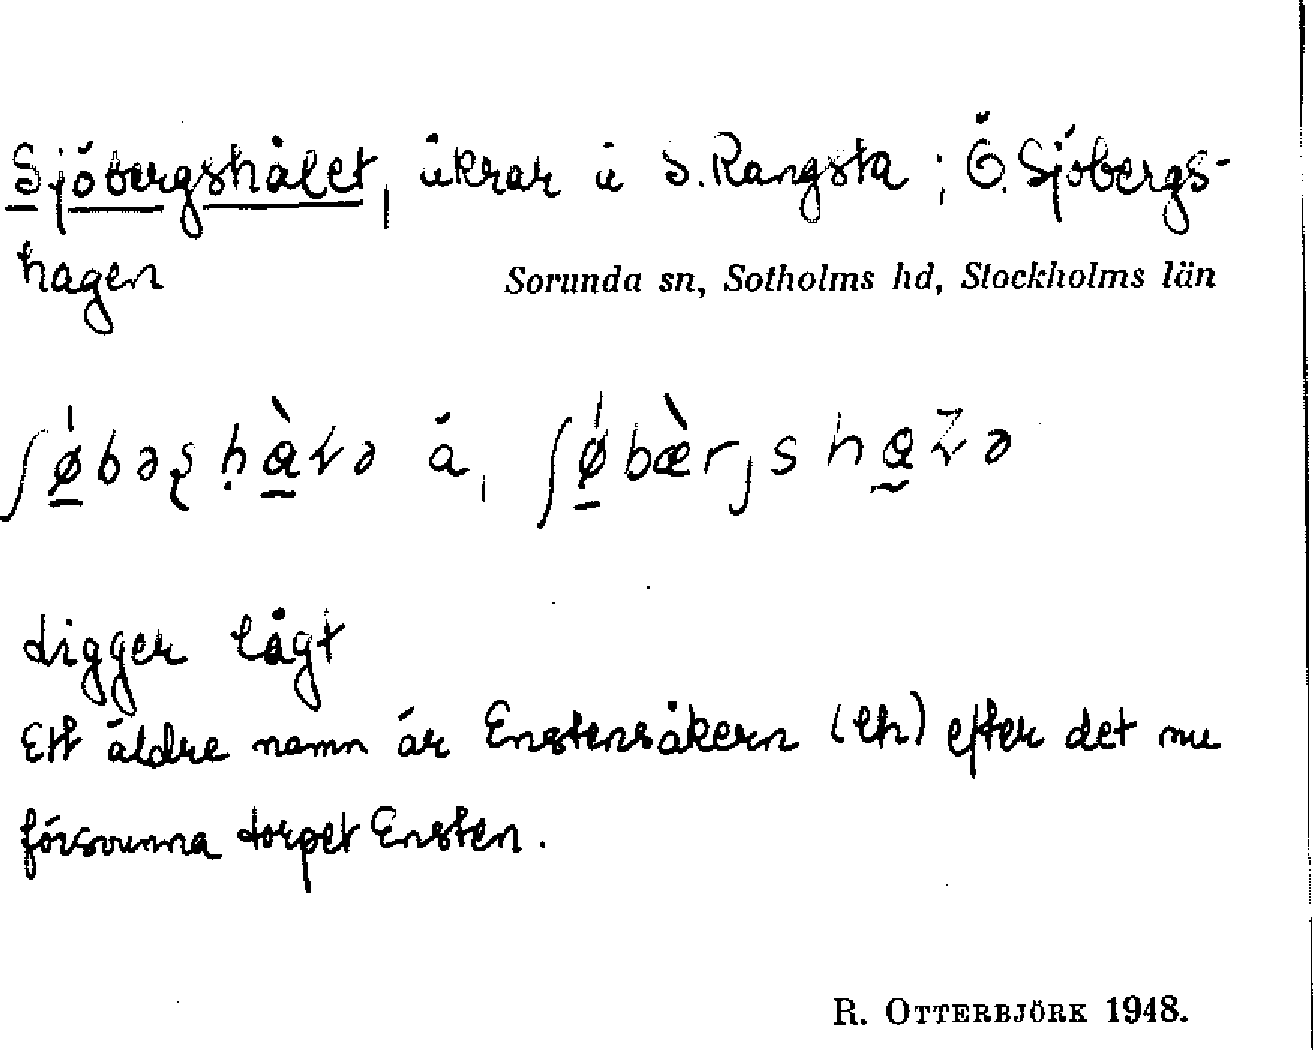 Sjöbergshålet, åkrar i S. Rangsta ; Ö. Sjöbergs-
hagen
Sorunda sn, Sotholms hd, Stockholms län
ligger lågt
Ett äldre namn är Enstensåkern (eh) efter det nu
försvunna torpet Ensten.
R. OTTERBJÖRK 1948.